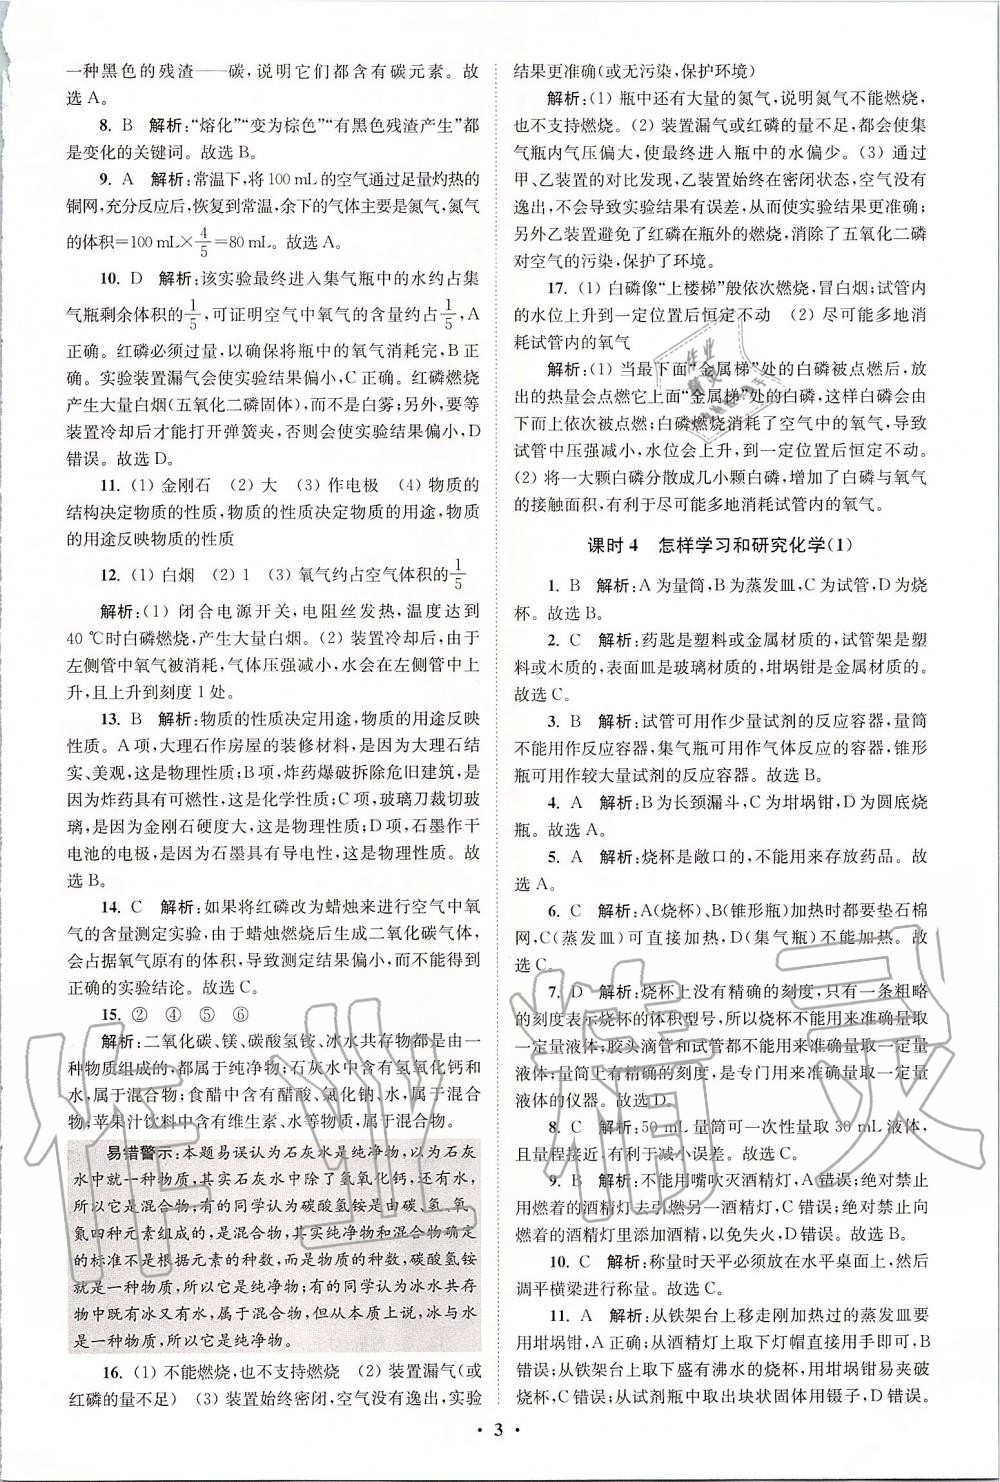 一种黑色的残渣——碳,说明它们都含有碳元素。故
选 A。
8. B 解析:“熔化”“变为棕色”“有黑色残渣产生”都
是变化的关键词。故选 B。
9. A 解析:常温下,将 100 mL 的空气通过足量灼热的
铜网,充分反应后,恢复到常温,余下的气体主要是氮气,氮气
的体积=100 mL×4/5=80 mL。故选 A。
10. D 解析:该实验最终进入集气瓶中的水约占集
气瓶剩余体积的1/5,可证明空气中氧气的含量约占1/5,A
正确。红磷必须过量,以确保将瓶中的氧气消耗完,B 正
确。实验装置漏气会使实验结果偏小,C 正确。红磷燃烧
产生大量白烟(五氧化二磷固体),而不是白雾;另外,要等
装置冷却后才能打开弹簧夹,否则会使实验结果偏小,D
错误。故选 D。
11. (1) 金刚石 (2) 大 (3) 作电极 (4) 物质的
结构决定物质的性质,物质的性质决定物质的用途,物质
的用途反映物质的性质
12. (1) 白烟 (2) 1 (3) 氧气约占空气体积的1/5
解析:(1) 闭合电源开关,电阻丝发热,温度达到
40 ℃时白磷燃烧,产生大量白烟。(2) 装置冷却后,由于
左侧管中氧气被消耗,气体压强减小,水会在左侧管中上
升,且上升到刻度 1 处。
13. B 解析:物质的性质决定用途,物质的用途反映
性质。A 项,大理石作房屋的装修材料,是因为大理石结
实、美观,这是物理性质;B 项,炸药爆破拆除危旧建筑,是
因为炸药具有可燃性,这是化学性质;C 项,玻璃刀裁切玻
璃,是因为金刚石硬度大,这是物理性质;D 项,石墨作干
电池的电极,是因为石墨具有导电性,这是物理性质。故
选 B。
14. C 解析:如果将红磷改为蜡烛来进行空气中氧
气的含量测定实验,由于蜡烛燃烧后生成二氧化碳气体,
会占据氧气原有的体积,导致测定结果偏小,而不能得到
正确的实验结论。故选 C。
15. ② ④ ⑤ ⑥
解析:二氧化碳、镁、碳酸氢铵、冰水共存物都是由一
种物质组成的,都属于纯净物;石灰水中含有氢氧化钙和
水,属于混合物;食醋中含有醋酸、氯化钠、水,属于混合
物;苹果汁饮料中含有维生素、水等物质,属于混合物。
易错警示:本题易误认为石灰水是纯净物,以为石灰
水中就一种物质,其实石灰水中除了氢氧化钙,还有水,
所以它是混合物;有的同学认为碳酸氢铵是由碳、氢、氧、
氮四种元素组成的,是混合物,其实纯净物和混合物确定
的标准不是根据元素的种数,而是物质的种数,碳酸氢铵
就是一种物质,所以它是纯净物;有的同学认为冰水共存
物中既有冰又有水,属于混合物,但从本质上说,冰与水
是一种物质,所以它是纯净物。
16. (1) 不能燃烧,也不支持燃烧 (2) 装置漏气(或
红磷的量不足) (3) 装置始终密闭,空气没有逸出,实验
结果更准确(或无污染,保护环境)
解析:(1) 瓶中还有大量的氮气,说明氮气不能燃烧,
也不支持燃烧。(2) 装置漏气或红磷的量不足,都会使集
气瓶内气压偏大,使最终进入瓶中的水偏少。(3) 通过
甲、乙装置的对比发现,乙装置始终在密闭状态,空气没有
逸出,不会导致实验结果有误差,从而使实验结果更准确;
另外乙装置避免了红磷在瓶外的燃烧,消除了五氧化二磷
对空气的污染,保护了环境。
17. (1) 白磷像“上楼梯”般依次燃烧,冒白烟;试管内
的水位上升到一定位置后恒定不动 (2) 尽可能多地消
耗试管内的氧气
解析:(1) 当最下面“金属梯”处的白磷被点燃后,放
出的热量会点燃它上面“金属梯”处的白磷,这样白磷会由
下而上依次被点燃;白磷燃烧消耗了空气中的氧气,导致
试管中压强减小,水位会上升到一定位置后恒定不动。
(2) 将一大颗白磷分散成几小颗白磷,增加了白磷与氧气
的接触面积,有利于尽可能多地消耗试管内的氧气。
课时 4 怎样学习和研究化学(1)
1. B 解析:A 为量筒,B 为蒸发皿,C 为试管,D 为烧
杯。故选 B。
2. C 解析:药匙是塑料或金属材质的,试管架是塑
料或木质的,表面皿是玻璃材质的,坩埚钳是金属材质的。
故选 C。
3. B 解析:试管可用作少量试剂的反应容器,量筒
不能用作反应容器,集气瓶可用作气体反应的容器,锥形
瓶可用作较大量试剂的反应容器。故选 B。
4. A 解析:B 为长颈漏斗,C 为坩埚钳,D 为圆底烧
瓶。故选 A。
5. A 解析:烧杯是敞口的,不能用来存放药品。故
选 A。
6. C 解析:A(烧杯)、B(锥形瓶)加热时都要垫石棉
网,C(蒸发皿)可直接加热,D(集气瓶)不能加热。故
选 C。
7. D 解析:烧杯上没有精确的刻度,只有一条粗略
的刻度表示烧杯的体积型号,所以烧杯不能用来准确量取
一定量液体;胶头滴管和试管都不能用来准确量取一定量
液体;量筒上有精确的刻度,是专门用来准确量取一定量
液体的仪器。故选 D。
8. C 解析:50 mL 量筒可一次性量取 30 mL 液体,
且量程接近,有利于减小误差。故选 C。
9. B 解析:不能用嘴吹灭酒精灯,A 错误;绝对禁止
用燃着的酒精灯去引燃另一酒精灯,C 错误;绝对禁止向
燃着的酒精灯里添加酒精,以免失火,D 错误。故选 B。
10. C 解析:称量时天平必须放在水平桌面上,然后
调平横梁进行称量。故选 C。
11. A 解析:从铁架台上移走刚加热过的蒸发皿要
用坩埚钳,A 正确;从酒精灯上取下灯帽直接用手即可,B
错误;从铁架台上取下盛有沸水的烧杯,用坩埚钳易夹破
烧杯,C 错误;从试剂瓶中取出块状固体用镊子,D 错误。
• 3 •
作业精灵